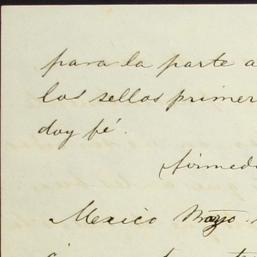 para la parte a
los sellos primer
doy fé.
firmed
Mexico Mayo